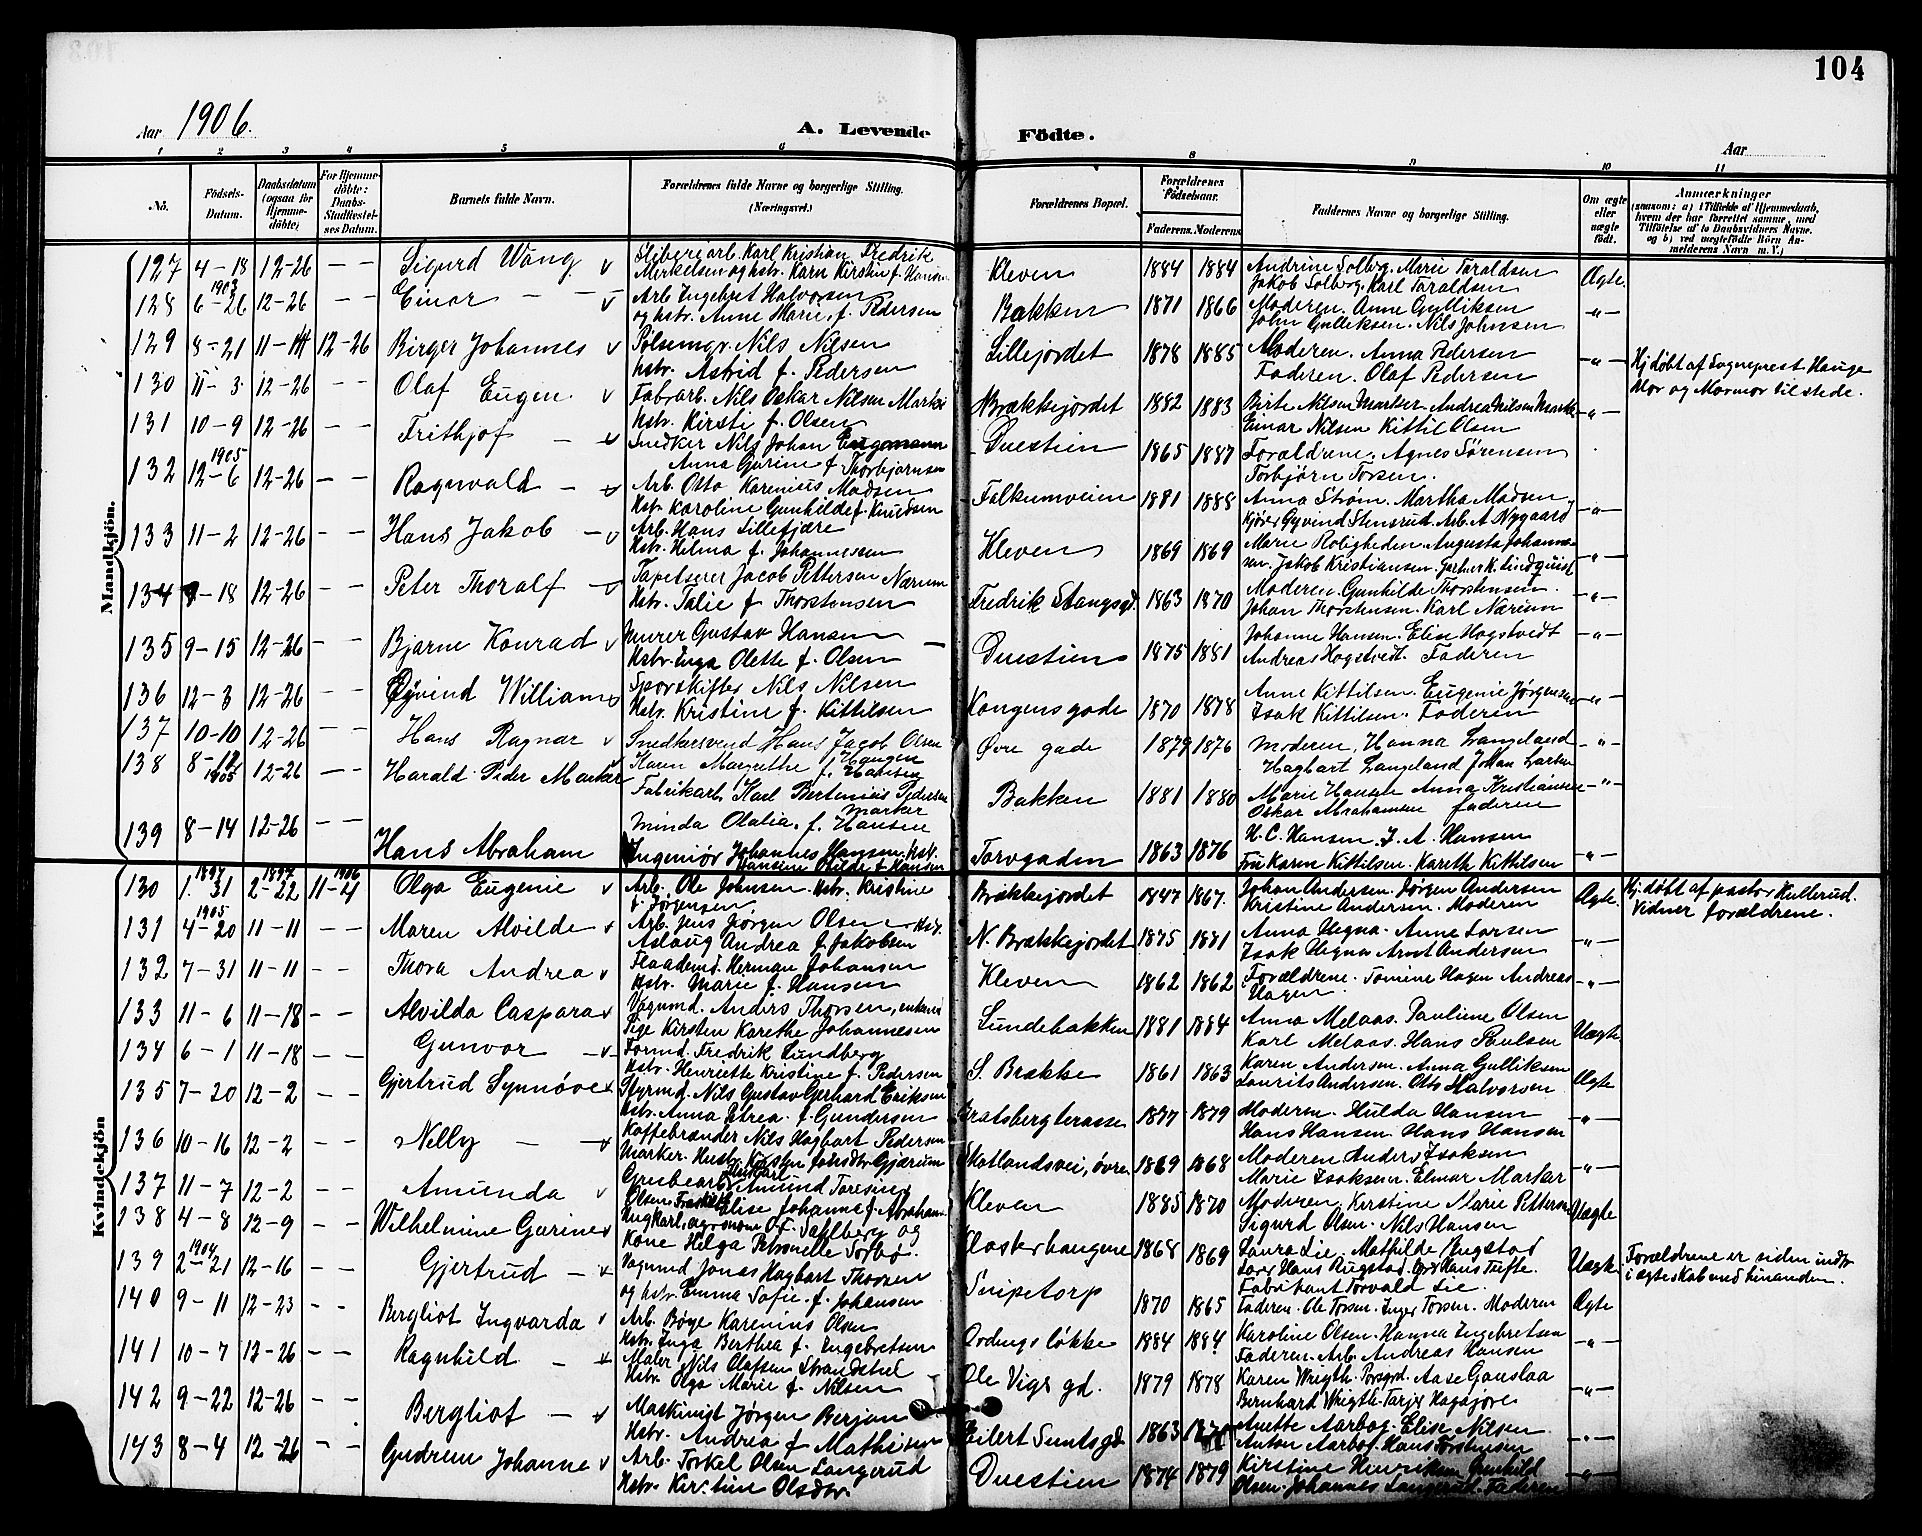 104
Aar 1906.
A. Levende Födte.
Aar
1 2 3 4 5 6 8 9 10 11
No. Födsels-Datum. Daabsdatum (ogsaa for Hjemmedöbte) For Hjemmedöbte: Daabs-Stadfæstelses Datum. Barnets fulde Navn. Forældrenes fulde Navne og borgerlige Stilling. (Næringsvei.) Forældrenes Bopæl. Forældrenes Födselsaar. Faderens. Moderens. Faddernes Navne og borgerlige Stilling. Om ægte eller uægte födt. Anmærkninger (saasom: a) i Tilfælde af Hjemmedaab, hvem der har forrettet samme, med Tilföielse af to Daabsvidners Navne, og b) ved uægtefödte Börn Anmelderens Navn m. V.)
Mandkjön.
127 4-18 12-26 - - Sigurd Wang v Slibereiarb. Karl Kristian Fredrik
Merkelsen og hstr. Karn Kirstine f. Hansen Kleven 1884 1884 Andrine Solberg. Marie Taraldsen
Jakob Solberg. Karl Taraldsen Ægte.
128 1903 6-26 12-26 - - Einar - - v Arb. Ingebret Halvorsen
og hstr. Anne Marie f. Pedersen Bakken 1871 1866 Moderen. Anne Gulliksen
John Gulliksen. Nils Johnsen -"-
129 8-21 11-14 12-26 Birger Johannes v Pölsemgr. Nils Nilsen
Hstr. Astrid f. Pedersen Lillejordet 1878 1885 Moderen. Anna Pedersen
Faderen. Olaf Pedersen -"- Hj. döbt af Sogneprest Hauge
Mor og Mormor tilstede.
130 11-3 12-26 - - Olaf Eugen v Fabrarb. Nils Oskar Nilsen Marker
Hstr. Kirsti f. Olsen N. Brækkejordet 1882 1883 Birte Nilsen Marker Andrea Nilsen Marker
Einar Nilsen Kittil Olsen -"-
131 10-9 12-26 Frithjof - v Snedker Nils Johan Engemann
Anna Gurine f Thorbjørnsen Duestien 1865 1887 Forældrene. Agnes Sörensen
Torbjörn Torsen.
132 1905 12-6 12-26 - - Ragnvald - v Arb. Otto Karenius Madsen
Hstr Karoline Gunhilde f. Knudsen Falkumveien 1881 1888 Anna Ström. Martha Madsen
Kjörer Øyvind Stensrud. Arb. A Nygaard -"-
133 11-2 12-26 - - Hans Jakob - v Arb. Hans Lillefjære
Hstr. Helma f. Johannessen Kleven 1869 1869 Marie Roligheden Augusta Johannesen.
Jakob Kristiansen. Gartner K. Lindquist -"-
134 9-18 12-26 - - Peter Thoralf - v Tapetserer Jacob Pettersen Nærum
Hstr. Talie f Thorstensen Fredrik Stangsgd. 1863 1870 Moderen. Gunhilde Thorstensen.
Johan Thorstensen. Karl Nærum -"-
135 9-15 12-26 - - Bjarne Konrad v Murer Gustav Hansen
Hstr. Inga Olette f. Olsen Duestien 1875 1881 Johanne Hansen. Elise Hogstvedt
Andreas Hogstvedt. Faderen -"-
136 12-3 12-26 - - Øivind William v Sporskifter Nils Nilsen
Hstr. Kristine f. Kittilsen Kongensgade 1870 1878 Anne Kittilsen. Eugenie Jörgensen
Isak Kittilsen. Faderen -"-
137 10-10 12-26 - - Hans Ragnar v Snedkersvend Hans Jacob Olsen
Karen Margrethe f. Hansen Øvre gade 1879 1876 Moderen, Hanna Langeland
Hagbart Langeland Johan Larsen -"-
138 8-12 1905 12-26 - - Harald Peder Marker Fabrikarb. Karl Bertenius Pedersen Marker
Minda Olalia. f. Hansen Bakken 1881 1880 Marie Hansen Anna Kristiansen
Oskar Abrahamsen faderen -"-
139 8-14 12-26 - - Hans Abraham Ingeniör Johannes Hansen. Hstr.
Hansine Hilda f Hansen Torvgaden 1863 1876 H. C. Hansen. J. A. Hansen
Fru Karen Kittilsen. Kareth Kittilsen -"-
Kvindekjön
130 1897 1. 31 1897 2-22 1906 11-4 Olga Eugenie v Arb. Ole Johnsen. Hstr. Kristine
f. Jörgensen Brækkejordet 1847 1867. Johan Andersen. Jörgen Andersen
Kristine Andersen. Moderen Ægte. Hj. döbt af pastor Hullerud.
Vidner forældrene.
131 1905 4-20 11-11 - - Maren Alvilde v Arb. Jens Jörgen Olsen Hstr.
Aslaug Andrea f. Jakobsen N. Brækkejordet 1875 1881 Anna Hegna. Anne Larsen
Isak Hegna Arnt Andersen -"-
132 7-31 11-11 - - Thora Andrea v Flaademd. Herman Johansen
Hstr. Marie f. Hansen Kleven 1862 1862 Forældrene. Tomine Hagen Andreas
Hagen -"-
133 11-6 11-18 - - Alvilda Caspara v Vognmd. Anders Thorsen,
Pige Kirsten Karethe Johannesen Lundebakken 1881 1884 Anna Melaas. Pauline Olsen
Karl Melaas. Hans Paulsen Uægte
134 6-1 11-18 - - Gunvor - v Formd. Fredrik Lundberg
Hstr. Henriette Kristine f. Pedersen S. Brække 1861 1863 Karen Andersen. Anna Gulliksen
Laurits Andersen. Otto Halvorsen Ægte
135 7-20 12-2 - - Gjertrud Synnöve v Styrmd. Nils Gustav Gerhard Eriksen
Hstr. Anna Petrea f Gundersen Bratsbergterasse 1877 1879 Moderen. Hulda Hansen
Hans Hansen. Hans Hansen -"-
136 10-16 12-2 - - Nelly - v Kaffebrænder Nils Hagbart Pedersen
Marker. Hustr. Kirsten Gjærum Skotlandsvei, övre 1869 1868 Moderen Anders Isaksen
Marie Isaksen. Elmar Marker -"-
137 11-7 12-2 - - Amunda v Grubearb. Amund Toresius
Olsen. Elise Johanne f Abraham Kleven 1885 1870 Moderen, Kirstine Marie Pettersen
Sigurd Olsen. Nils Hansen Uægte
138 4-8 12-9 - - Wilhelmine Gurine v Ungkarl, agronom O. F. Sahlberg og
Kone Helga Petronelle Torbö. Klosterhaugene 1868 1869 Laura Lie. Mathilde Rugstad
Hans Rugstad. Hans Tufte.
Fabrikant Torvald Lie Uægte Forældrene er siden indtr.
i ægteskab med hinanden.
139 1904 2-21 12-16 Gjertrud - v Vognmd Jonas Hagbart Thorsen
og hstr. Emma Sofie f. Johansen Snipetorp 1870 1865 Faderen. Ole Torsen. Inger Torsen. Moderen Ægte
140 9-11 12-23 - - Bergliot Ingvarda v Arb. Böye Karenius Olsen
Hstr. Inga Berthea f. Ingebretsen Ordingslökke 1884 1884 Karoline Olsen. Hanna Ingebretsen
Faderen. Arb. Andreas Hansen -"-
141 10-7 12-26 - - Ragnhild - v Maler Nils Olafsen Strandstiel
Hstr. Olga Marie f. Nilsen Ole Vigs gd. 1879 1878 Karen Wrigth. Porsgrd. Aase Gonslaa
Bernhard Wrigth. Tarjei Hagajöre -"-
142 9-22 12-26 - - Bergliot - v Maskinigt Jörgen Berjan
Hstr. Andrea f Mathisen Eilert Suntsgd 1863 1870 Anette Aarbog. Elise Nilsen
Anton Aarbog. Hans Torstensen -"-
143 8-4 12-26 - - Gudrun Johanne v Arb. Torkel Olsen Langerud
Hstr. Kirstine Olsdtr. Duestien 1874 1879 Kirstine Henriksen Gunhild
Olsen. Johannes Langerud. Faderen -"-